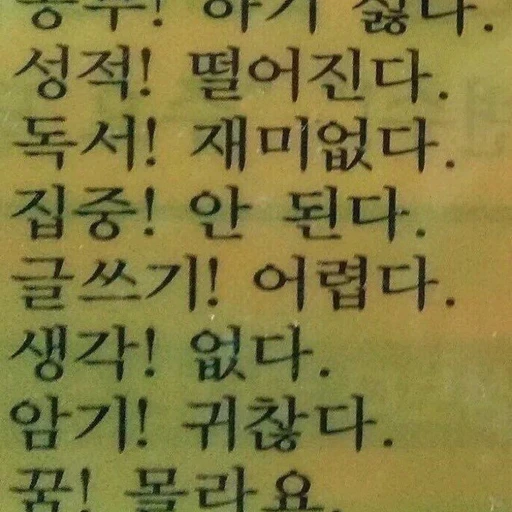 공부! 하기 싫다.
성적! 떨어진다.
독서! 재미없다.
집중! 안 된다.
글쓰기! 어렵다.
생각! 없다.
암기! 귀찮다.
꿈! 몰라요.